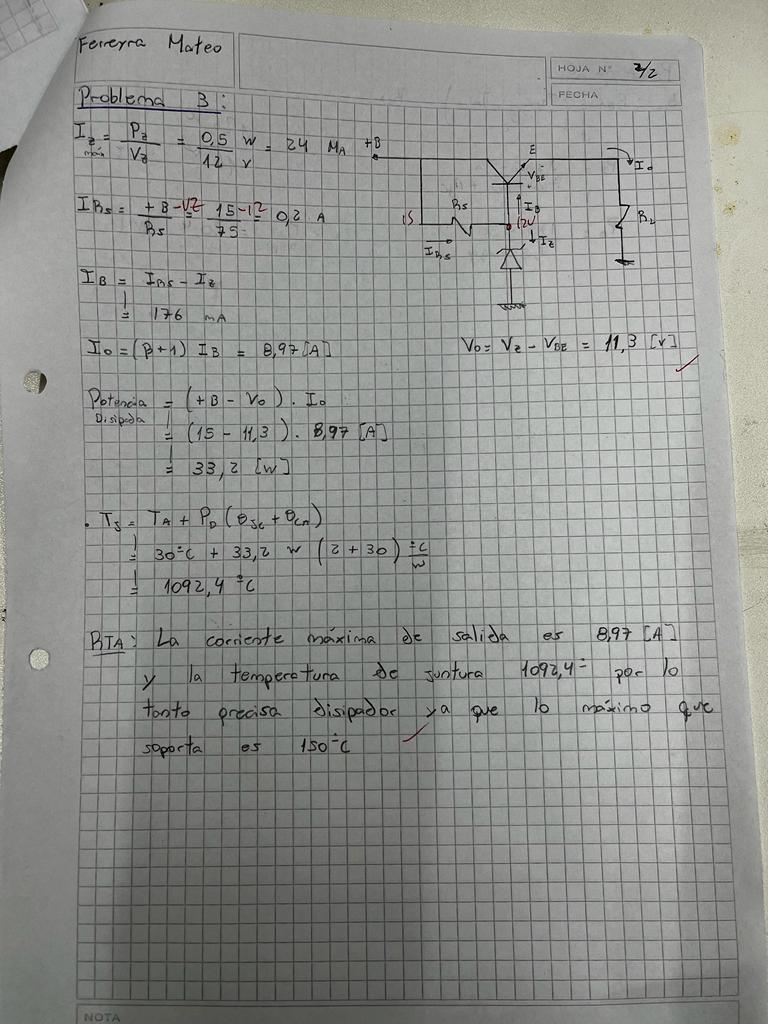 Ferreyra Mateo
HOJA N° 2/2
FECHA
Problema 3:
Iz máx = Pz / Vz = 0,5 W / 12 V = 24 MA
+B
E
VBE
- +
Io
IRs = +B -VZ / Rs = 15 -12 / 75 = 0,2 A
15
Rs
IB
12V
RL
IRs
Iz
IB = IRs - Iz
= 176 mA
Io = (β+1) IB = 8,97 [A]
Vo = Vz - VBE = 11,3 [V]
Potencia Disipada = (+B - Vo) . Io
= (15 - 11,3) . 8,97 [A]
= 33,2 [W]
. TJ = TA + PD (θJC + θCA)
= 30°C + 33,2 W (2 + 30) °C/W
= 1092,4 °C
RTA: La corriente máxima de salida es 8,97 [A]
y la temperatura de juntura 1092,4° por lo
tanto precisa disipador ya que lo máximo que
soporta es 150°C
NOTA